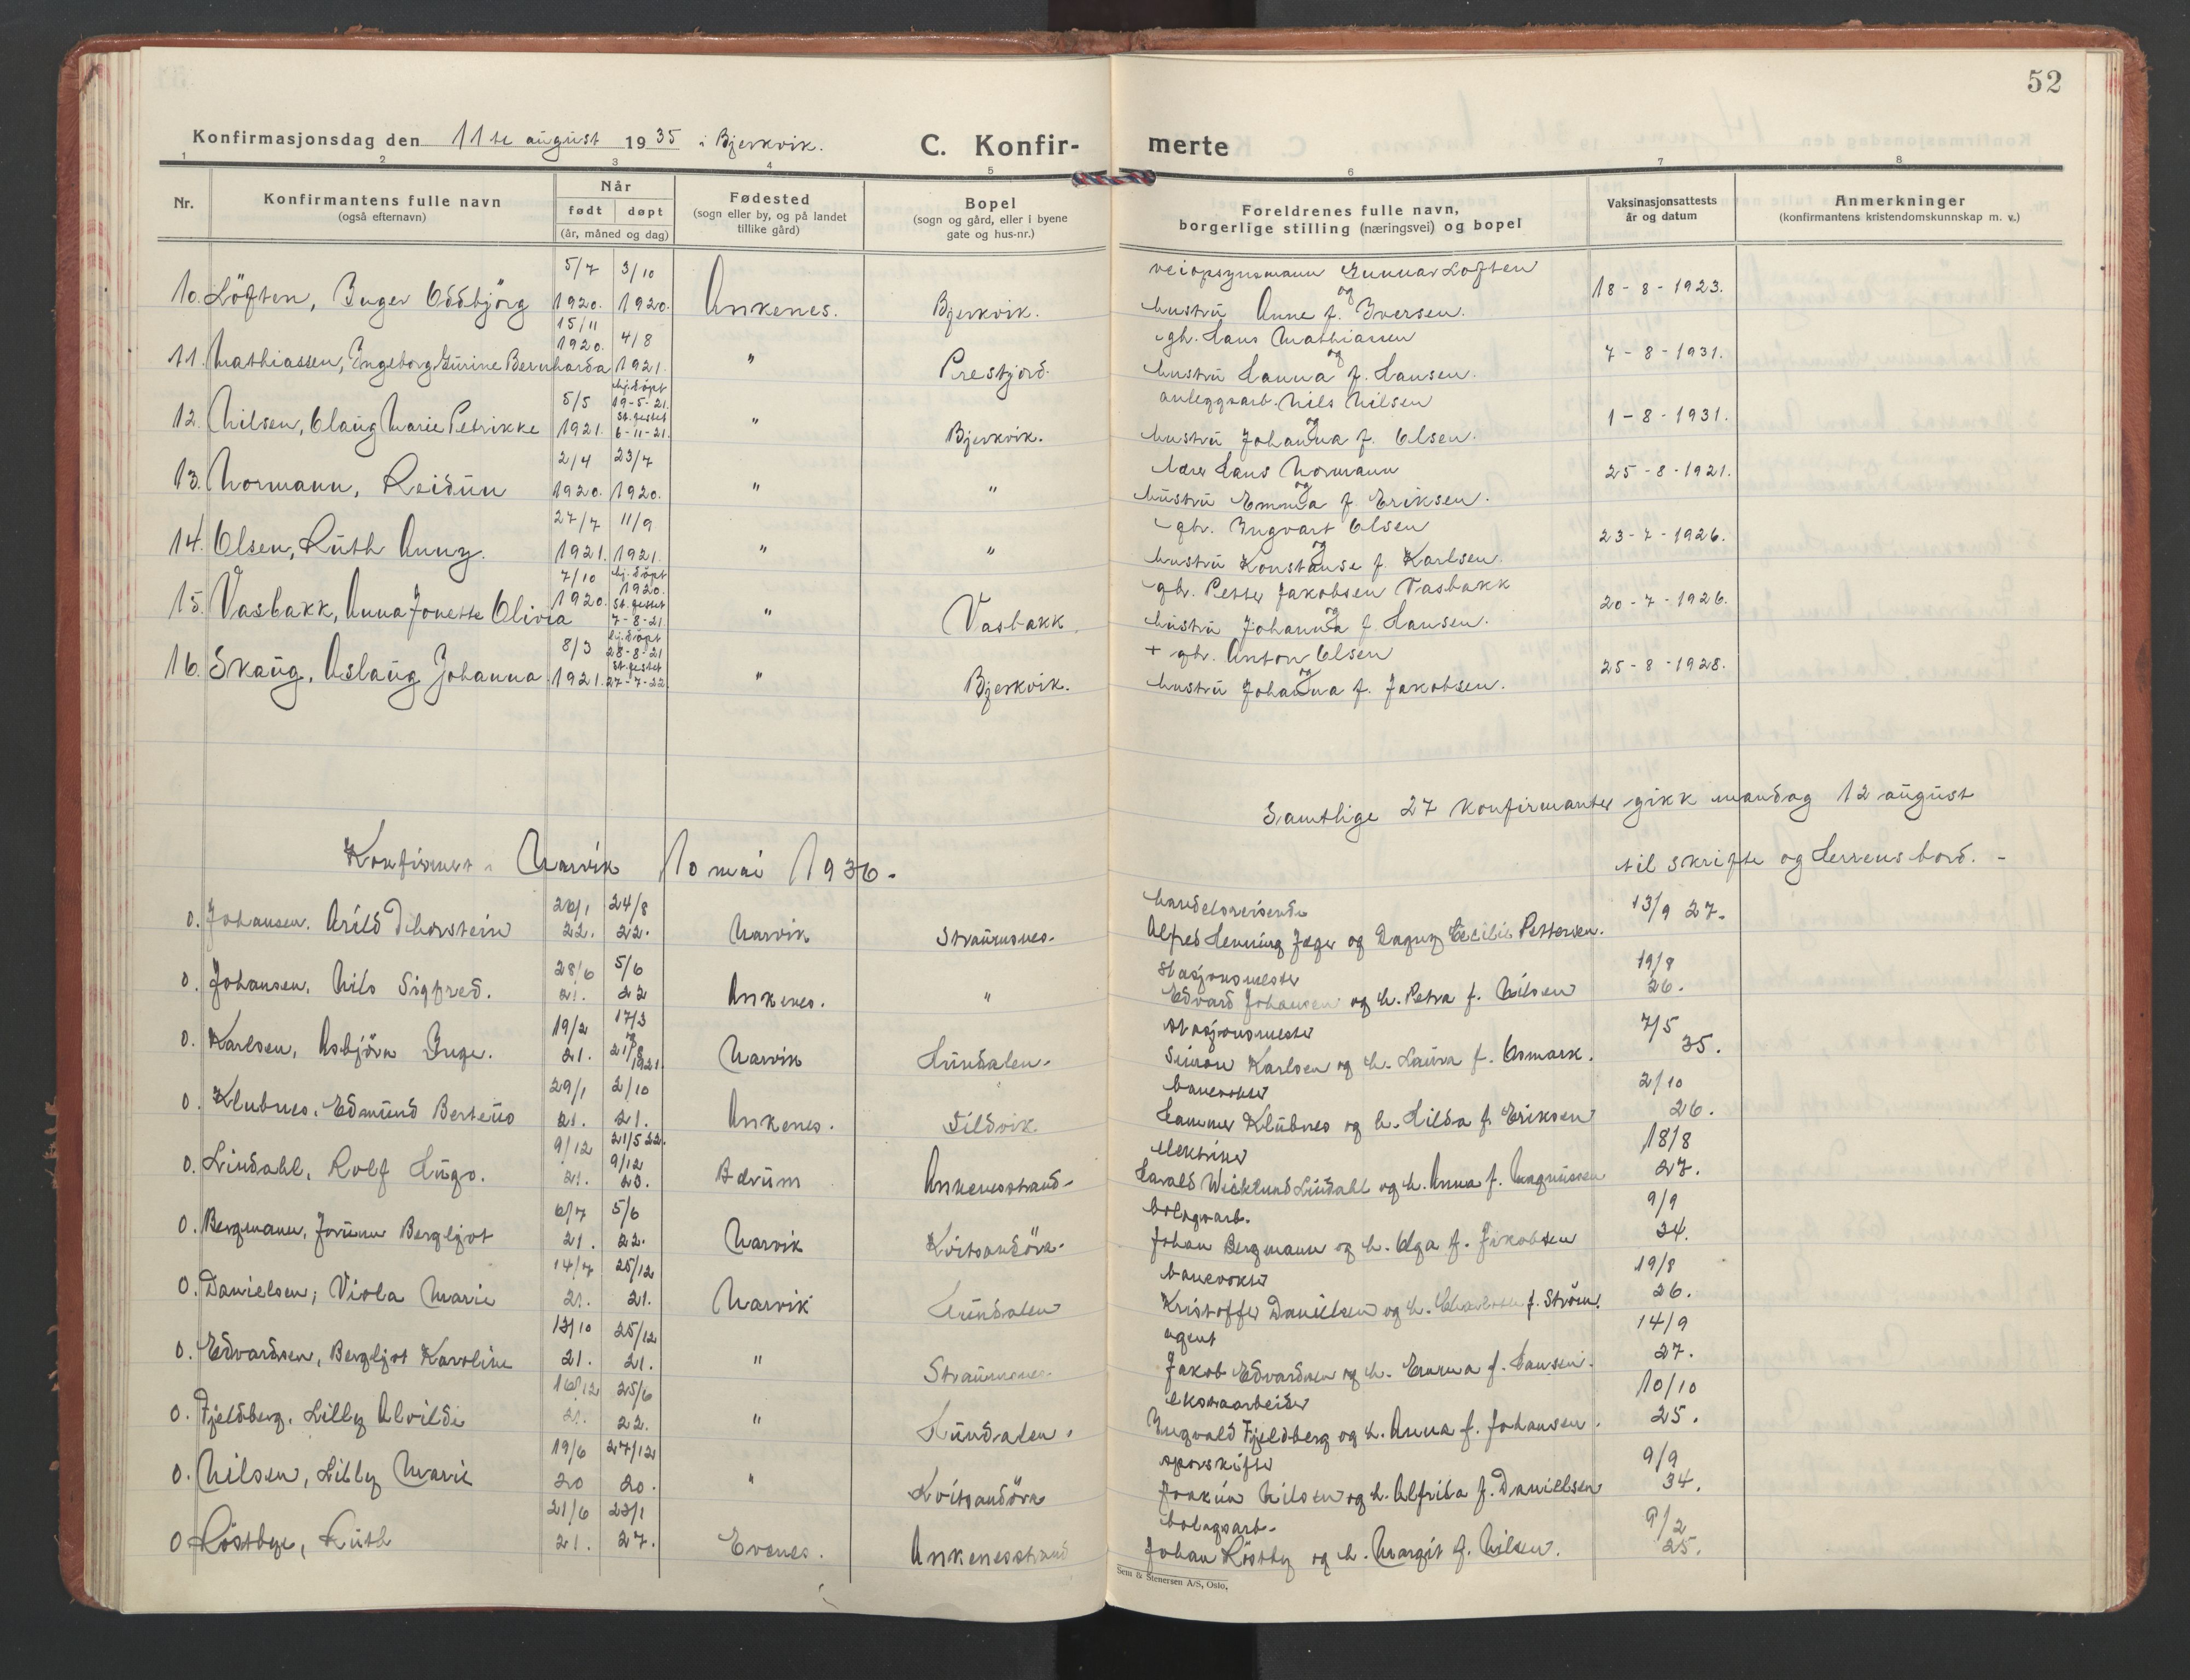 52
Konfirmasjonsdag den 11te august 1935 i Bjerkvik.
C. Konfir- merte
1 2 3 4 5 6 7 8
Nr.
Konfirmantens fulle navn
(også efternavn)
Når
født døpt
(år, måned og dag)
Fødested
(sogn eller by, og på landet
tillike gård)
Bopel
(sogn og gård, eller i byene
gate og hus-nr.)
Foreldrenes fulle navn,
borgerlige stilling (næringsvei) og bopel
Vaksinasjonsattests
år og datum
Anmerkninger
(konfirmantens kristendomskunnskap m. v.)
5/7 3/10 veiopsynsmann Gunnar Løften
10. Löften, Inger Oddbjörg 1920. 1920. Ankenes. Bjerkvik. og hustrü Anne f. Iversen. 18-8-1923.
15/11 4/8 gbr. Hans Mathiassen
11. Mathiassen, Engeborg Gurine Bernharda 1920. 1921. " Prestjord. og hustrü Hanna f. Hansen. 7-8-1931.
5/5 hj.döpt 19-5-21 anleggsarb. Nils Nilsen
12. Nilsen, Olaug Marie Petrikke 1921. st. festet 6-11-21. " Bjerkvik. og hustrü Johanna f. Olsen. 1-8-1931.
2/4 23/7 lærer Hans Normann
13. Normann, Reidün 1920. 1920. " " og hüstrü Emma f. Eriksen. 25-8-1921.
27/7 11/9 gbr. Ingvart Olsen
14. Olsen, Rüth Anny. 1921. 1921. " " og hustrü Konstanse f. Karlsen. 23-7-1926.
7/10 hj.döpt 1920. gbr. Petter Jakobsen Vasbakk
15. Vasbakk, Anna Jonette Olivia 1920. st. festet 7-8-21 " Vasbakk og hüstrü Johanna f. Hansen. 20-7-1926.
8/3 hj.döpt 28-8-21 + gbr. Anton Olsen
16. Skaüg, Aslaüg Johanna 1921. st. festet 27-7-22 " Bjerkvik. og hustrü Johanna f. Jakobsen. 25-8-1928.
Samtlige 27 konfirmanter gikk mandag 12 aügüst
til skrifte og Herrens bord. -
Konfirmert i Narvik 10 mai 1936.
26/1 24/8 handelsreisende 13/9 27.
0. Johansen. Arild Thorstein 22. 22. Narvik Straumsnes. Alfred Henning Jæger og Dagny Cecilie Pettersen.
28/6 5/6 stasjonsmester 19/8
0. Johansen, Nils Sigfred. 21. 22 Ankenes. " Edvard Johansen og h. Petra f. Nilsen 26.
19/2 17/3 og stasjonsmester 7/5
0. Karlsen, Asbjörn Inge. 21. 21/8 1921. Narvik Hündalen. Simon Karlsen og h. Laura f. Osmark. 35.
29/1 2/10 banevokter 2/10
0. Klubnes. Edmünd Berteüs 21. 21. Ankenes. Sildvik. Hammer Klübnes og h. Hilda f. Eriksen 26.
9/12 21/5 22. 9/12 elektriker 18/8
0. Lindahl, Rolf Hügo. 21. 23. Bærüm Ankenesstrand. Harald Wicklund Lindahl og h. Anna f. Magnüssen 27.
6/7 5/6 bolagsarb. 9/9
0. Bergmann, Jorünn Bergljot 21. 22. Narvik Kvitsandöra. Johan Bergmann og h. Olga f. Jakobsen 34.
14/7 25/12 banevokter 19/8
0. Danielsen, Viola Marie 21. 21. Narvik Hündalen Kristoffer Danielsen og h. f. Ström. 26.
13/10 25/12 agent 14/9
0. Edvardsen, Bergljot Karoline 21. 21. " Straümsnes. Jakob Edvardsen og h. Emma f. Hansen. 27.
16/12 25/6 ekstraarbeider 10/10
0. Fjeldberg, Lilly Alvilde 21. 22. " Hündalen. Ingvald Fjeldberg og h. Anna f. Johansen. 25.
19/6 27/12 sporskifter 9/9
0. Nilsen, Lilly Marie 20 20. " Kvitsandöra Joakim Nilsen og h. Alfrida f. Daniellsen 34.
21/6 23/1 bolagsarb. 9/2
0 Röstbye, Rüth 21. 27. Evenes. Ankenesstrand Johan Röstby og h. Margit f. Nilsen. 25.
Sem & Stenersen A/S, Oslo.